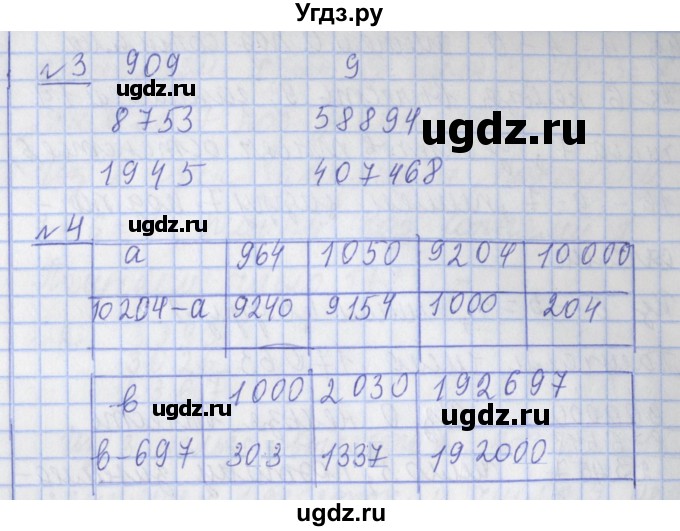 Угдз.ру
№3 909 9
ugdz.ru
8753 58894 ugdz.ru
1945 407468
№4 ugdz.ru
a 964 1050 9204 10000
10204-a 9240 9154 1000 204
в 1000 2030 192697
ugdz.ru ugdz.ru
в-697 303 1337 192000
ugdz.ru